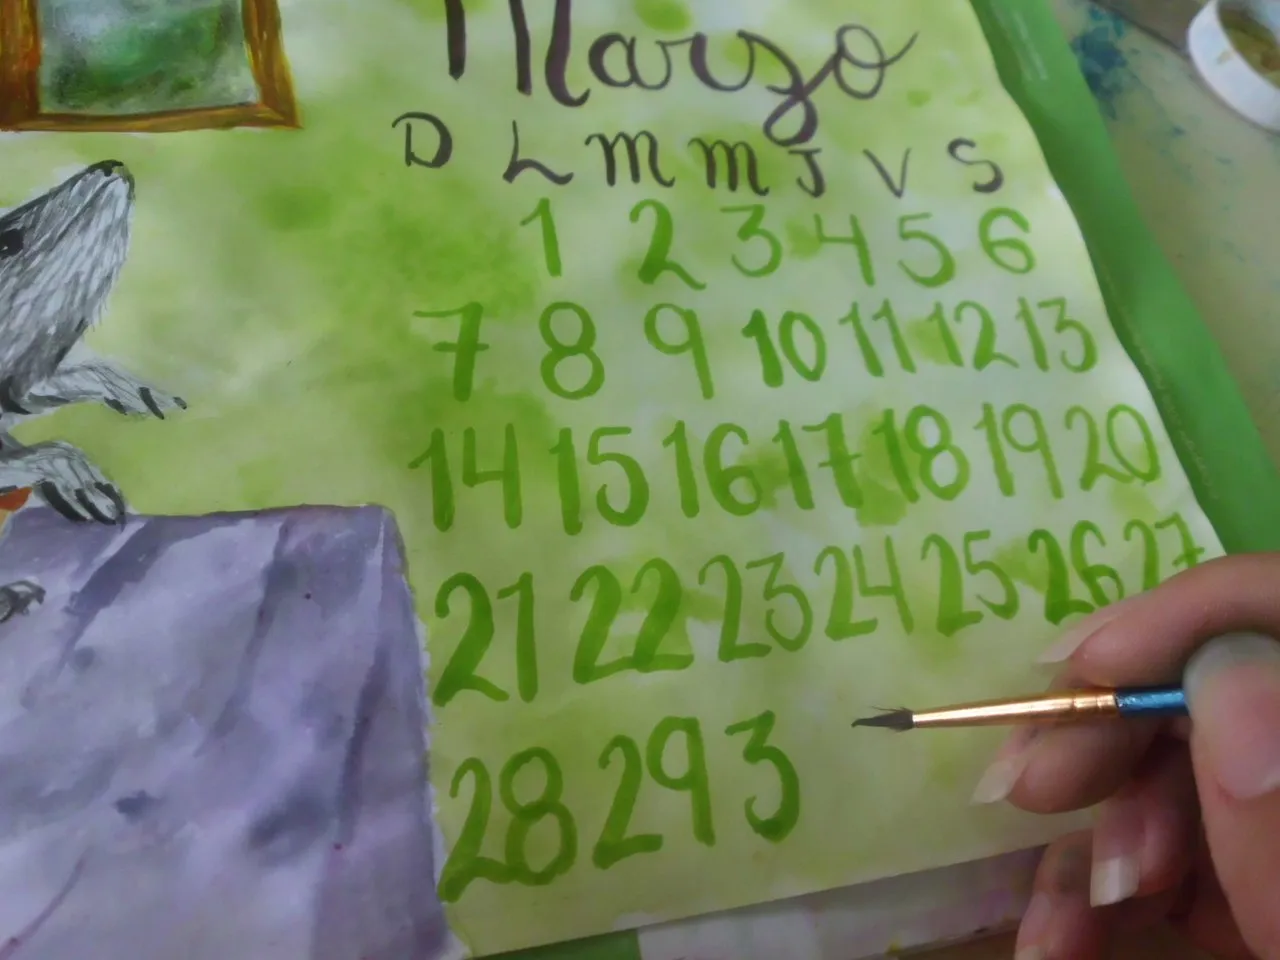 Marzo
D L M M J V S
1 2 3 4 5 6
7 8 9 10 11 12 13
14 15 16 17 18 19 20
21 22 23 24 25 26 27
28 29 3